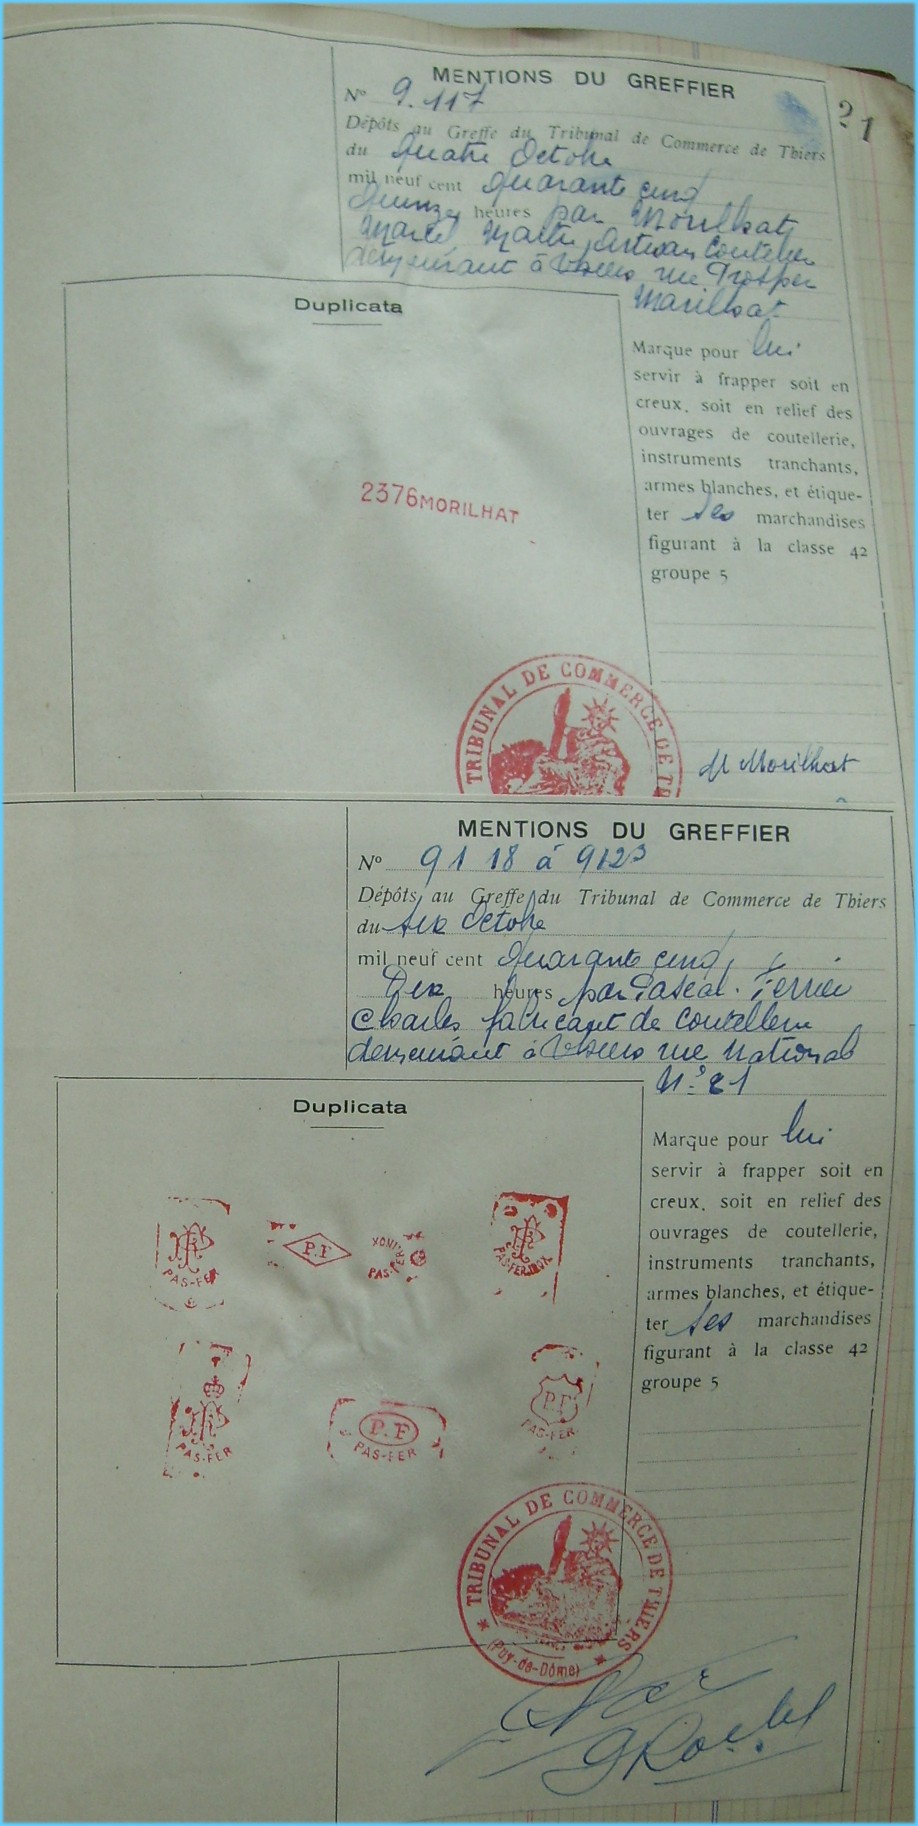 MENTIONS DU GREFFIER
21
N° 9.117
Dépôts au Greffe du Tribunal de Commerce de Thiers
du Quatre Octobre
mil neuf cent quarante cinq
Quinze heures par Morilhat
Marcel Maître Artisan Coutelier
demeurant à Thiers rue Prosper
Marilhat
Duplicata
Marque pour lui
servir à frapper soit en
creux, soit en relief des
ouvrages de coutellerie,
instruments tranchants,
armes blanches, et étique-
ter ses marchandises
figurant à la classe 42
groupe 5
2376 MORILHAT
TRIBUNAL DE COMMERCE DE T
M Morilhat
MENTIONS DU GREFFIER
N° 9118 à 9123
Dépôts au Greffe du Tribunal de Commerce de Thiers
du Six Octobre
mil neuf cent quarante cinq
Dix heures par Pascal. Ferrier
Charles fabricant de Coutellerie
demeurant à Thiers rue National
N° 21
Duplicata
Marque pour lui
servir à frapper soit en
creux, soit en relief des
ouvrages de coutellerie,
instruments tranchants,
armes blanches, et étique-
ter ses marchandises
figurant à la classe 42
groupe 5
PAS-FER
P.F
PAS-FER INOX
PAS-FER INOX
PAS-FER
P.F
PAS-FER
P.F
PAS-FER
TRIBUNAL DE COMMERCE DE THIERS
(Puy-de-Dôme)